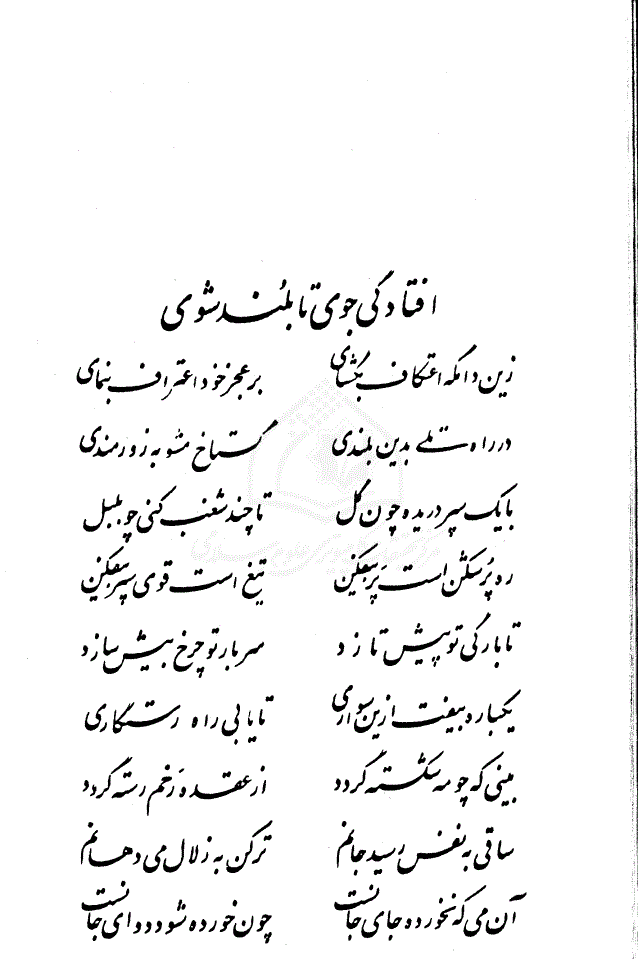 افتادگی جوی تا بلند شوی
زین دامگه اعتکاف بگشای بر عجز خود اعتراف بنمای
در راه تلے بدین بلندی گستاخ مشو به زورمندی
با یک سپر دریده چون گل تا چند شغب کنی چو بلبل
ره پُر شکن است پَر بیفکن تیغ است قوی سپر بیفکن
تا بارگی تو پیش تازد سربار تو چرخ بیش سازد
یکباره بیفت ازین سواری تا یابی راه رستگاری
بینی که چو مه شکسته گردد از عقده زَخم رسته گردد
ساقی به نفس رسید جانم تر کن به زلال می دهانم
آن می که نخورده جای جانست چون خورده شود دوای جانست